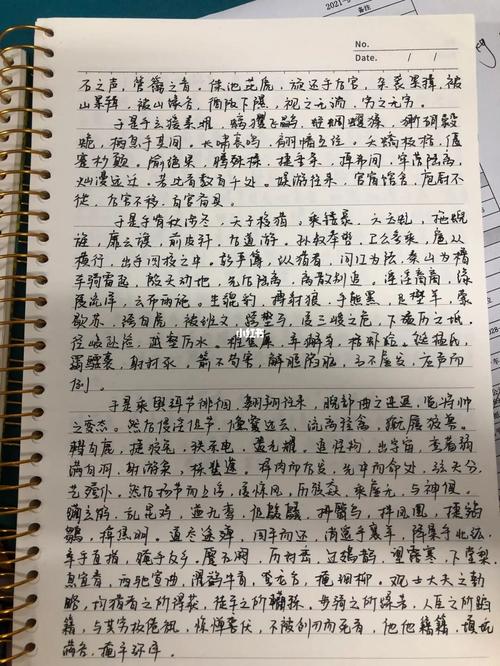 2021-
备注
No.
Date. / /
石之声，管籥之音。傑池茈虒，旋还乎后宫，杂袭累辑，被
山缘谷，循阪下隰，视之无端，究之无穷。
于是乎玄猨素雌，蜼玃飞
栖息乎其间。长啸哀鸣，翩幡互经。夭蟜枝格，偃
蹇杪颠。隃绝梁，腾殊榛，捷垂条，掉希间，牢落陆离，
烂漫远迁。若此者数百千处。娱游往来，宫宿馆舍，庖厨不
徙，后宫不移，百官备具。
于是乎背秋涉冬，天子校猎。乘镂象，六玉虬，拖蜺
旌，靡云旗，前皮轩，后道游。孙叔奉辔，卫公参乘，扈从
横行，出乎四校之中。鼓严簿，纵猎者，河江为阹，泰山为橹
车骑雷起，殷天动地，先后陆离，离散别追。淫淫裔裔，缘
陵流泽，云布雨施。生貔豹，搏豺狼，手熊罴，足壄羊，蒙
鹖苏，绔白虎，被班文，跨壄马，凌三嵕之危，下碛历之坻。
径峻赴险，越壑厉水。椎蜚廉，弄獬豸，格虾蛤，鋋猛氏，
羂騕褭，射封豕。箭不苟害，解脰陷脑，弓不虚发，应声而
倒。
于是乘舆弭节徘徊，翱翔往来，睨部曲之进退，览将帅
之变态。然后侵淫促节，儵夐远去，流离轻禽，蹴履狡兽。
轊白鹿，捷狡兔，轶赤电，遗光耀。追怪物，出宇宙，弯蕃弱
满白羽，射游枭，栎蜚遽。择肉而后发，先中而命处，弦矢分，
艺殪仆。然后扬节而上浮，凌惊风，历骇猋，乘虚无，与神俱。
躏玄鹤，乱昆鸡，遒孔鸾，促鵔鸃，拂翳鸟，捎凤凰，捷鹓
鶵，揜焦明。道尽途殚，回车而还，消遥乎襄羊，降集乎北纮，
率乎直指，晻乎反乡。蹷石阙，历封峦，过鳷鹊，望露寒，下堂梨，
息宜春，西驰宣曲，濯鹢牛首，登龙台，掩细柳。观士大夫之勤
略，均猎者之所得获，徒车之所轥轹，步骑之所蹂若，人臣之所蹈
籍，与其穷极倦䠘，惊惮詟伏，不被创刃而死者，他他籍籍，填坑
满谷，掩平弥泽。
小红书